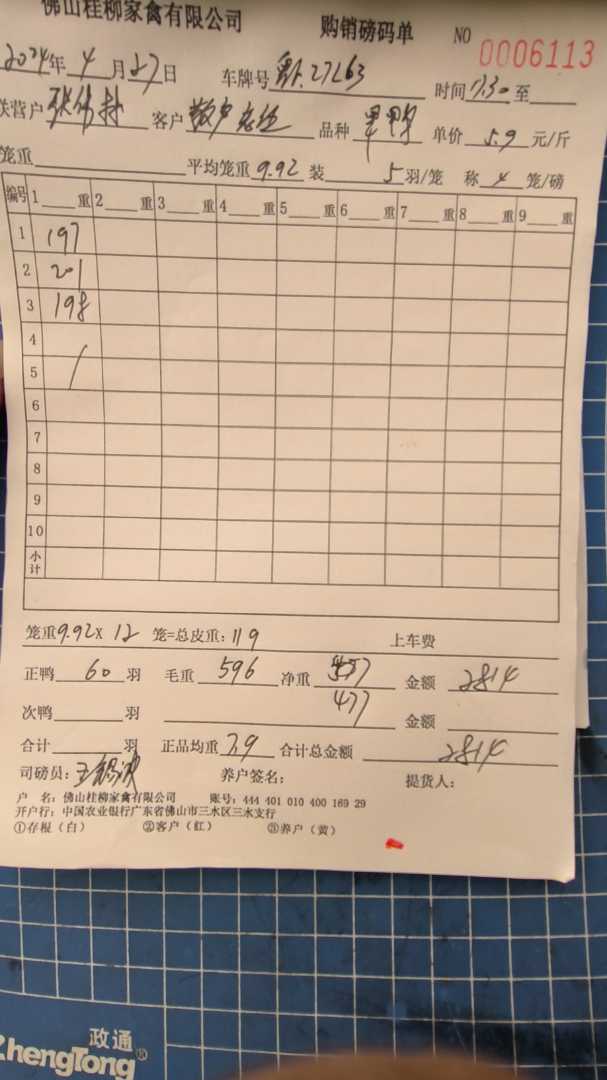 佛山桂柳家禽有限公司 购销磅码单 NO 0006113
2024年 4 月 27 日 车牌号 27263 时间 7.30 至
联营户 客户 散户 品种 单价 5.9 元/斤
笼重 平均笼重 9.92 装 5 羽/笼 称 4 笼/磅
编号 1 重 2 重 3 重 4 重 5 重 6 重 7 重 8 重 9 重
1 197
2 201
3 198
4
5
6
7
8
9
10
小计
笼重 9.92 X 12 笼=总皮重: 119 上车费
正鸭 60 羽 毛重 596 净重 金额 2814
次鸭 羽 477 金额
合计 羽 正品均重 7.9 合计总金额 2814
司磅员: 养户签名: 提货人:
户 名: 佛山桂柳家禽有限公司 账号: 444 401 010 400 169 29
开户行: 中国农业银行广东省佛山市三水区三水支行
①存根(白) ②客户(红) ③养户(黄)
政通
ZhengTong®